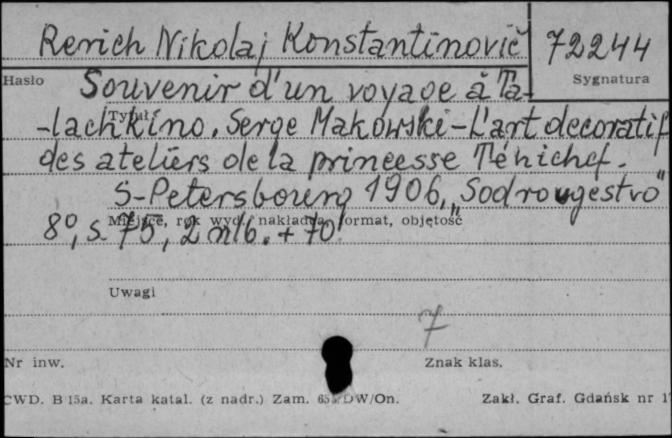 Rerich Nikolaj Konstantinovič
72244
Hasło
Sygnatura
Souvenir d'un voyage à Ta-
Tytuł
-lachkino. Serge Makowski - L'art decoratif
des ateliers de la princesse Ténichef.
S-Petersbourg 1906, "Sodrougestvo"
Miejsce, rok wyd., nakładca, format, objętość
8°, s. 75, 2 nlb. + 70
Uwagi
7
Nr inw.
Znak klas.
CWD. B 15a. Karta katal. (z nadr.) Zam. DW/On.
Zakł. Graf. Gdańsk nr